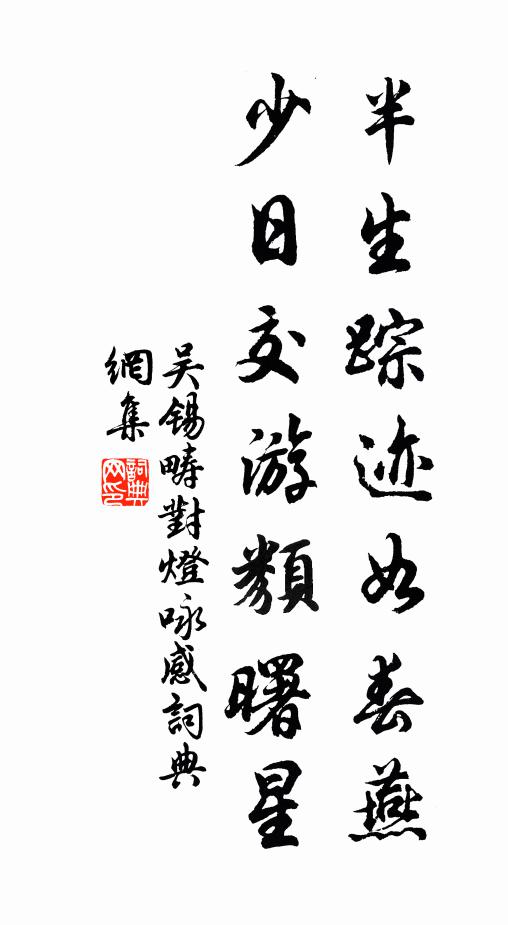 半生踪迹如春燕
少日交游類曙星
吴锡畴對燈咏感詞典
網集
詞典
网印